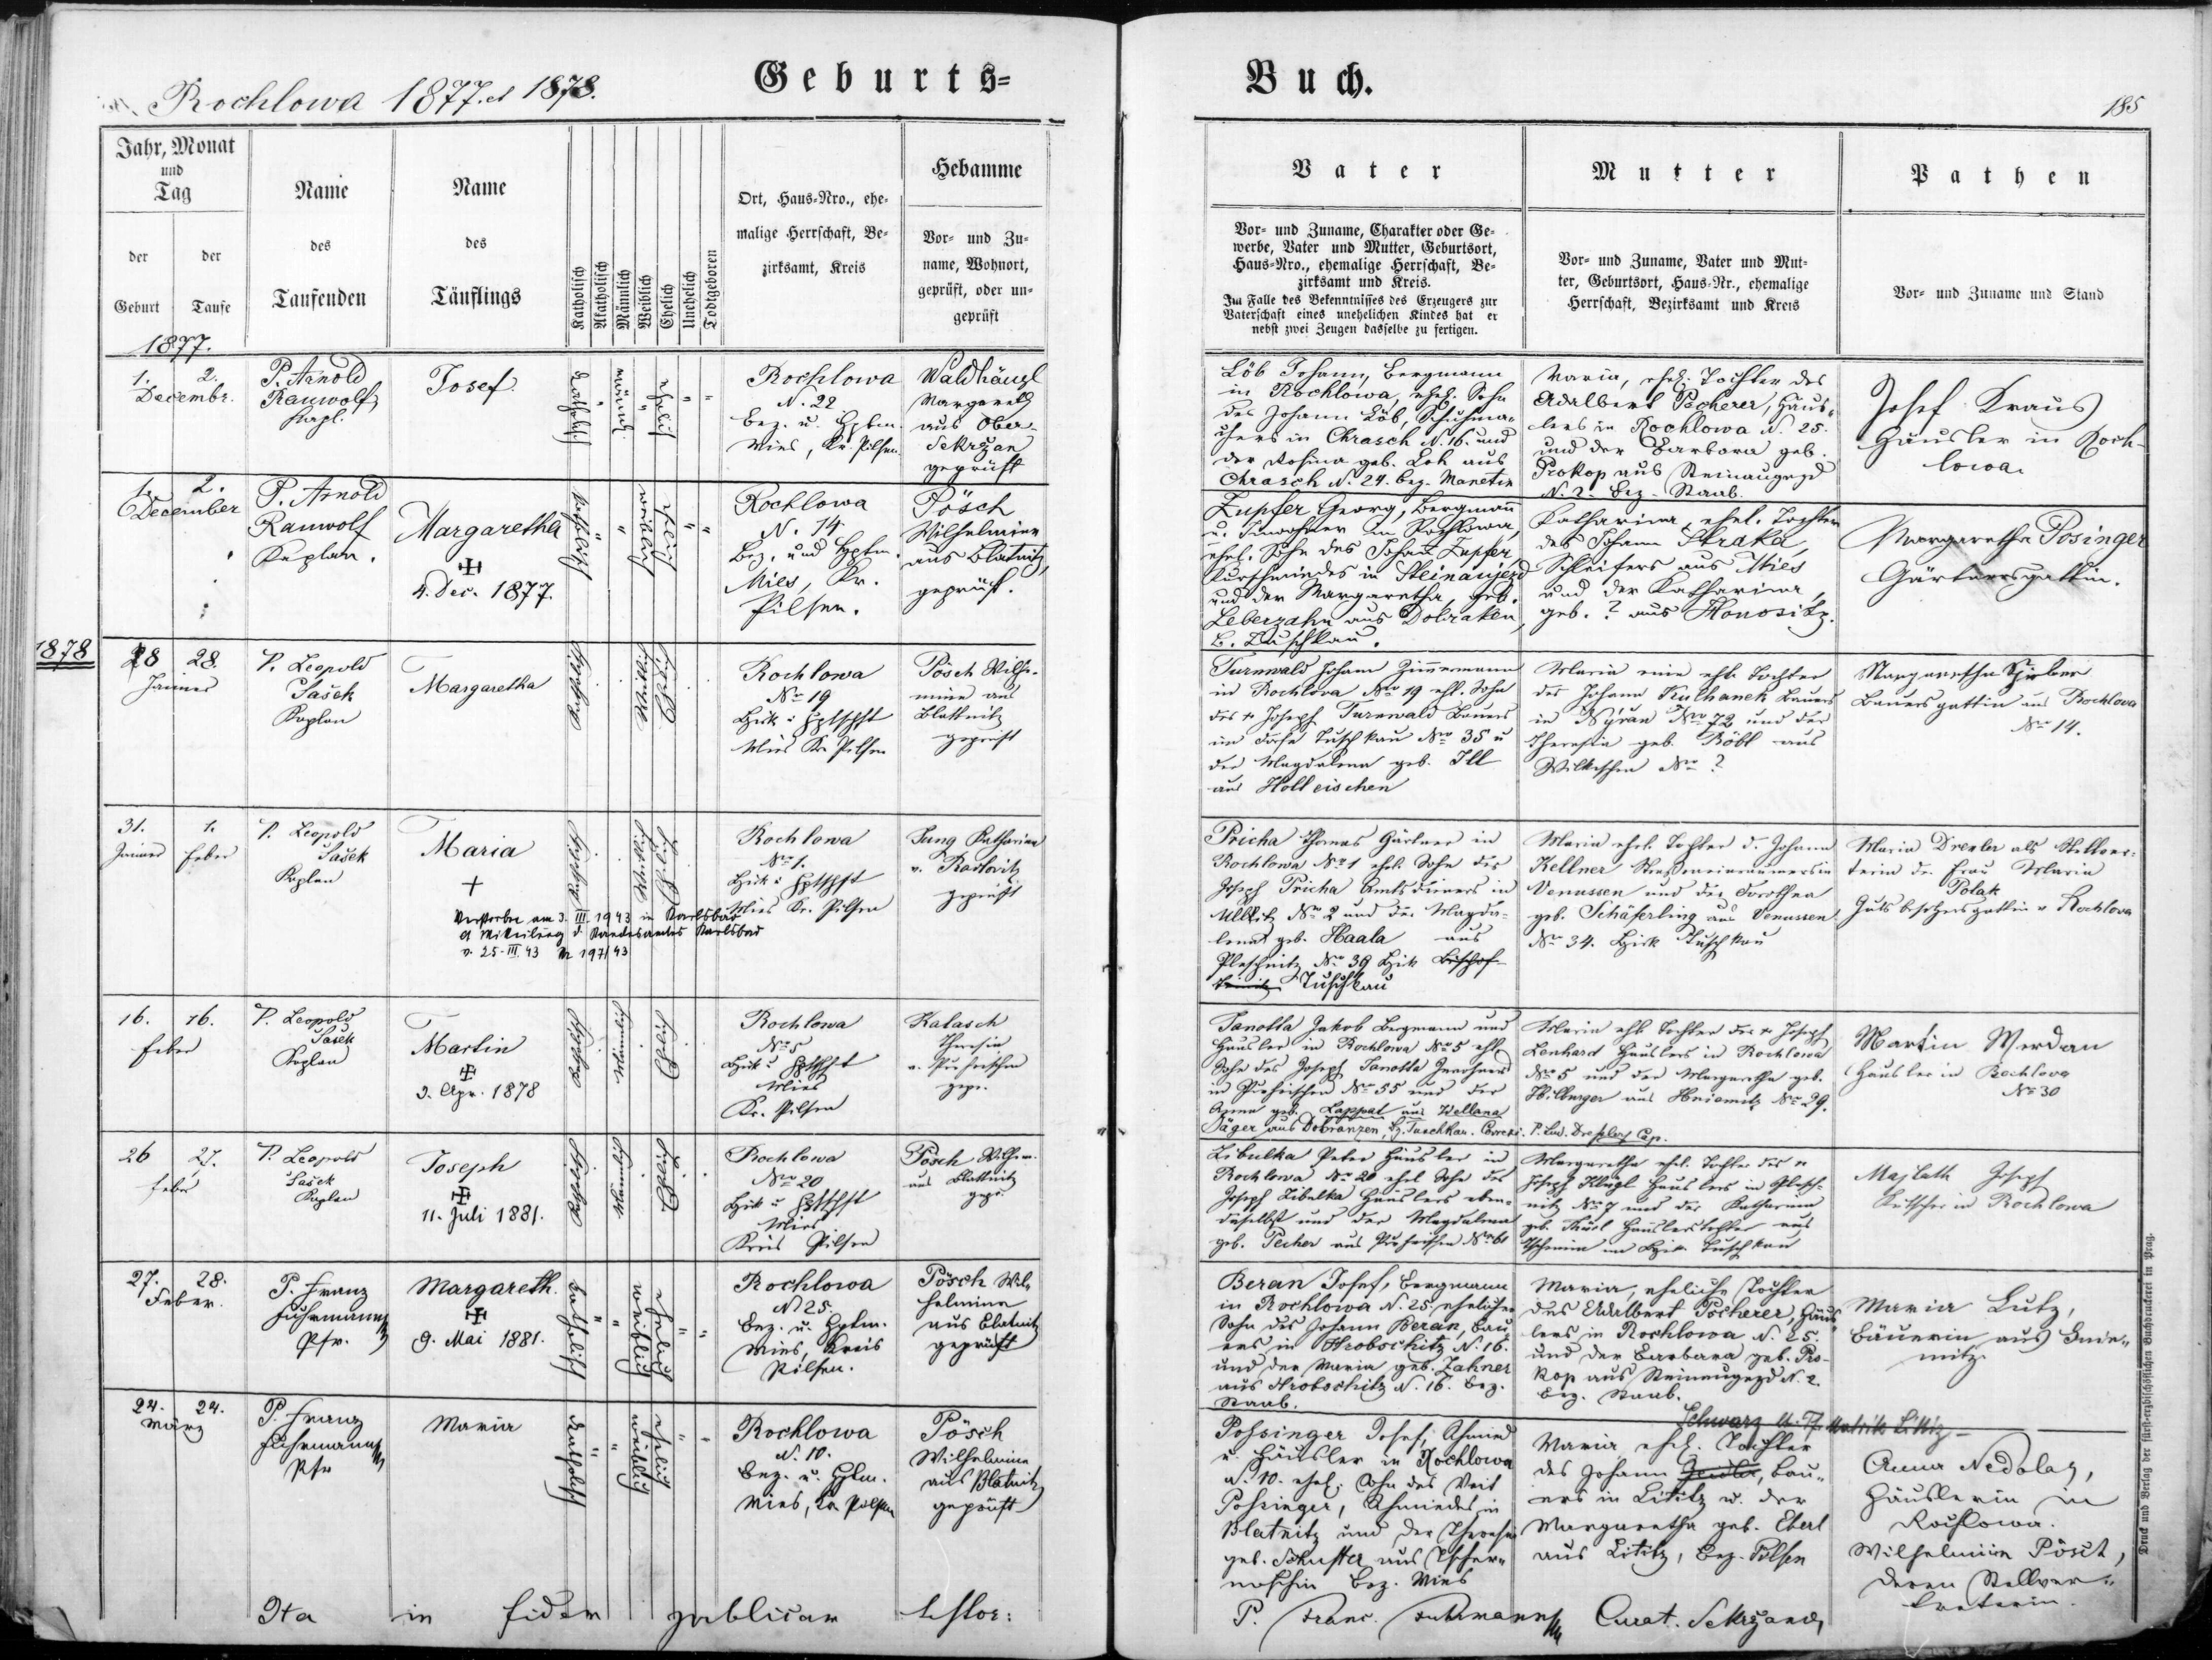 Rochlowa 1877. et 1878.
Geburts=
Buch.
185
Jahr, Monat
und
Tag
der
Geburt
der
Taufe
Name
des
Taufenden
Name
des
Täuflings
Katholisch
Akatholisch
Männlich
Weiblich
Ehelich
Unehelich
Todtgeboren
Ort, Haus=Nro., ehe=
malige Herrschaft, Be=
zirksamt, Kreis
Hebamme
Vor= und Zu=
name, Wohnort,
geprüft, oder un=
geprüft
Vater
Vor= und Zuname, Charakter oder Ge=
werbe, Vater und Mutter, Geburtsort,
Haus=Nro., ehemalige Herrschaft, Be=
zirksamt und Kreis.
Im Falle des Bekenntnisses des Erzeugers zur
Vaterschaft eines unehelichen Kindes hat er
nebst zwei Zeugen dasselbe zu fertigen.
Mutter
Vor= und Zuname, Vater und Mut=
ter, Geburtsort, Haus=Nr., ehemalige
Herrschaft, Bezirksamt und Kreis
Pathen
Vor= und Zuname und Stand
1877.
1. 2.
Decembr.
P. Arnold
Rauwolf
Kapl.
Josef
kathol.
männl.
ehelich
Rochlowa
N. 22
Bez. u. Hptm.
Mies, Kr. Pilsen.
Waldhäusl
Margareth
aus Ober-
Sekržan
geprüft
Löb Johann, Bergmann
in Rochlowa, ehel. Sohn
des Johann Löb, Schuhma-
chers in Chrasch N. 16. und
der Rosina geb. Loh aus
Chrasch N. 24. Bez. Manetin
Maria, ehel. Tochter des
Adalbert Pecherer, Häus-
lers in Rochlowa N. 25.
und der Barbara geb.
Prokop aus Steinaugezd
N. 2. Bez. Staab.
Josef Kraus
Häusler in Roch-
lowa.
1. 2.
December
P. Arnold
Rauwolf
Kaplan.
Margaretha
4. Dec. 1877.
katholisch
weiblich
ehelich
Rochlowa
N. 14
Bez. und Hptm.
Mies, Kr.
Pilsen.
Pösch
Wilhelmine
aus Blatnitz,
geprüft.
Zupfer Georg, Bergmann
u. Inwohner in Rochlowa,
ehel. Sohn des Johann Zupfer
Kurschmiedes in Steinaujezd
und der Margaretha, geb.
Leberzahn aus Dobraken,
B. Tuschkau.
Katharina, ehel. Tochter
des Johann Straka,
Schleifers aus Mies
und der Katharina,
geb. ? aus Honositz.
Margaretha Posinger
Gärtnersgattin.
1878
28 28.
Jänner
P. Leopold
Sašek
Kaplan
Margaretha
Katholisch
Weiblich
Ehelich
Rochlowa
No 19
Bzk u Hptschft
Mies Kr. Pilsen
Pösch Wilhel-
mine aus
Blattnitz
geprüft
Turnwald Johann Zimmermann
in Rochlova Nro 19 ehl. Sohn
des + Joseph Turnwald Bauers
im Dorfe Tuschkau Nro 35 u
der Magdalena geb. Ill
aus Holleischen
Maria eine ehl. Tochter
des Johann Kulhanek Bauers
in Nýran Nro 72 und der
Theresia geb. Böbl aus
Wilkischen Nro ?
Margaretha Spieber
Bauersgattin aus Rochlova
No 14.
31. 1.
Jänner Feber
P. Leopold
Sašek
Kaplan
Maria
+
Verstorben am 3. III. 1943 in Karlsbad
lt Mitteilung d. Standesamtes Karlsbad
v. 25-III. 43 Nr 197/43
Katholisch
Weiblich
Ehelich
Rochlowa
Nro 1.
Bzk u Hptschft
Mies Kr. Pilsen
Jung Katharina
v. Radlovitz
geprüft
Pricha Thomas Gärtner in
Rochlowa No 1 ehel. Sohn des
Joseph Pricha Amtsdieners in
Ullitz No 2 und der Magda-
lena geb. Haala aus
Pleschnitz No 39 Bzk Bischof-
teinitz Tuschkau
Maria ehel. Tochter d. Johann
Kellner Straßeneinräumers in
Wenussen und der Dorothea
geb. Schäferling aus Wenussen
No 34. Bzk Tuschkau
Maria Drexler als Stellver-
terin der Frau Maria
Polak
Gutsbesitzersgattin v Rochlova
16. 16.
Feber
P. Leopold
Sašek
Kaplan
Martin
3. Apr. 1878
Katholisch
Männlich
Ehelich
Rochlowa
No 5
Bzk u Hptschft
Mies
Kr. Pilsen
Kalasch
Theresia
gepr.
Janotta Jakob Bergmann und
Häusler in Rochlowa No 5 ehl.
Sohn des Joseph Janotta Inwohners
in Pscheheischen No 55 und der
Anna geb. Lappat aus Wellana
Jäger aus Dobranzen, Bz. Tuschkau. Correxi. P. Lud. Dreßler Cap.
Maria ehl. Tochter des + Joseph
Lenhard Häuslers in Rochlowa
No 5 und der Margaretha geb.
Hillinger aus Hniemitz No 29.
Martin Werdan
Häusler in Rochlova
No 30
26 27.
Feber
P. Leopold
Sašek
Kaplan
Joseph
11. Juli 1881.
Katholisch
Männlich
Ehelich
Rochlowa
Nro 20
Bzk u Hptschft
Mies
Kreis Pilsen
Pösch Wilhelm.
aus Blattnitz
gepr.
Zibulka Peter Häusler in
Rochlowa No 20 ehel. Sohn des
Joseph Zibulka Häuslers eben-
daselbst und der Magdalena
geb. Pecher aus
Margaretha ehel. Tochter des +
Joseph Häuslers in Plesch-
nitz No 7 und der Katharina
geb. Häuslerstochter aus
im Bzk. Tuschkau
Majlath Joseph
Kutscher in Rochlowa
27. 28.
Feber.
P. Franz
Fuhrmann
Pfr.
Margareth.
9. Mai 1881.
katholisch
weiblich
ehelich
Rochlowa
N 25.
Bez. u. Hptm.
Mies, Kreis
Pilsen.
Pösch Wil-
helmine
aus Blatnitz
geprüft
Beran Josef, Bergmann
in Rochlowa N. 25, ehelicher
Sohn des Johann Beran, Bau-
ers in Hrobschitz N. 16.
und der Maria geb. Zahner
aus Hrobschitz N. 16. Bez.
Staab.
Maria, eheliche Tochter
des Adalbert Pecherer, Häus-
lers in Rochlowa N. 25.
und der Barbara geb. Pro-
kop aus Steinaugezd N. 2.
Bez. Staab.
Maria Lutz,
Bäuerin aus Gnie-
mitz.
24. 24.
März
P. Franz
Fuhrmann
Pfr
Maria
katholisch
weiblich
ehelich
Rochlowa
N. 10.
Bez. u. Hptm.
Mies, Kr. Pilsen
Pösch
Wilhelmine
aus Blatnitz
geprüft
Possinger Josef, Schmied
u. Häusler in Rochlowa
N. 10. ehel. Sohn des Veit
Possinger, Schmiedes in
Blatnitz und der Theresia
geb. Schuster aus Tscher-
noschin Bez. Mies
Schwarz lt. Tf. Matrik Littitz
Maria ehel. Tochter
des Johann Bau-
ers in Lititz u. der
Margaretha geb. Eberl
aus Lititz, Bez. Pilsen
Anna Nedolaz,
Häuslerin in
Rochlowa.
Wilhelmine Pösch,
deren Stellver-
treterin.
Ita in fidem publicam testor:
P. Franc. Fuhrmann Curat. Sekržan.
Druck und Verlag der fürst=erzbischöflichen Buchdruckerei in Prag.